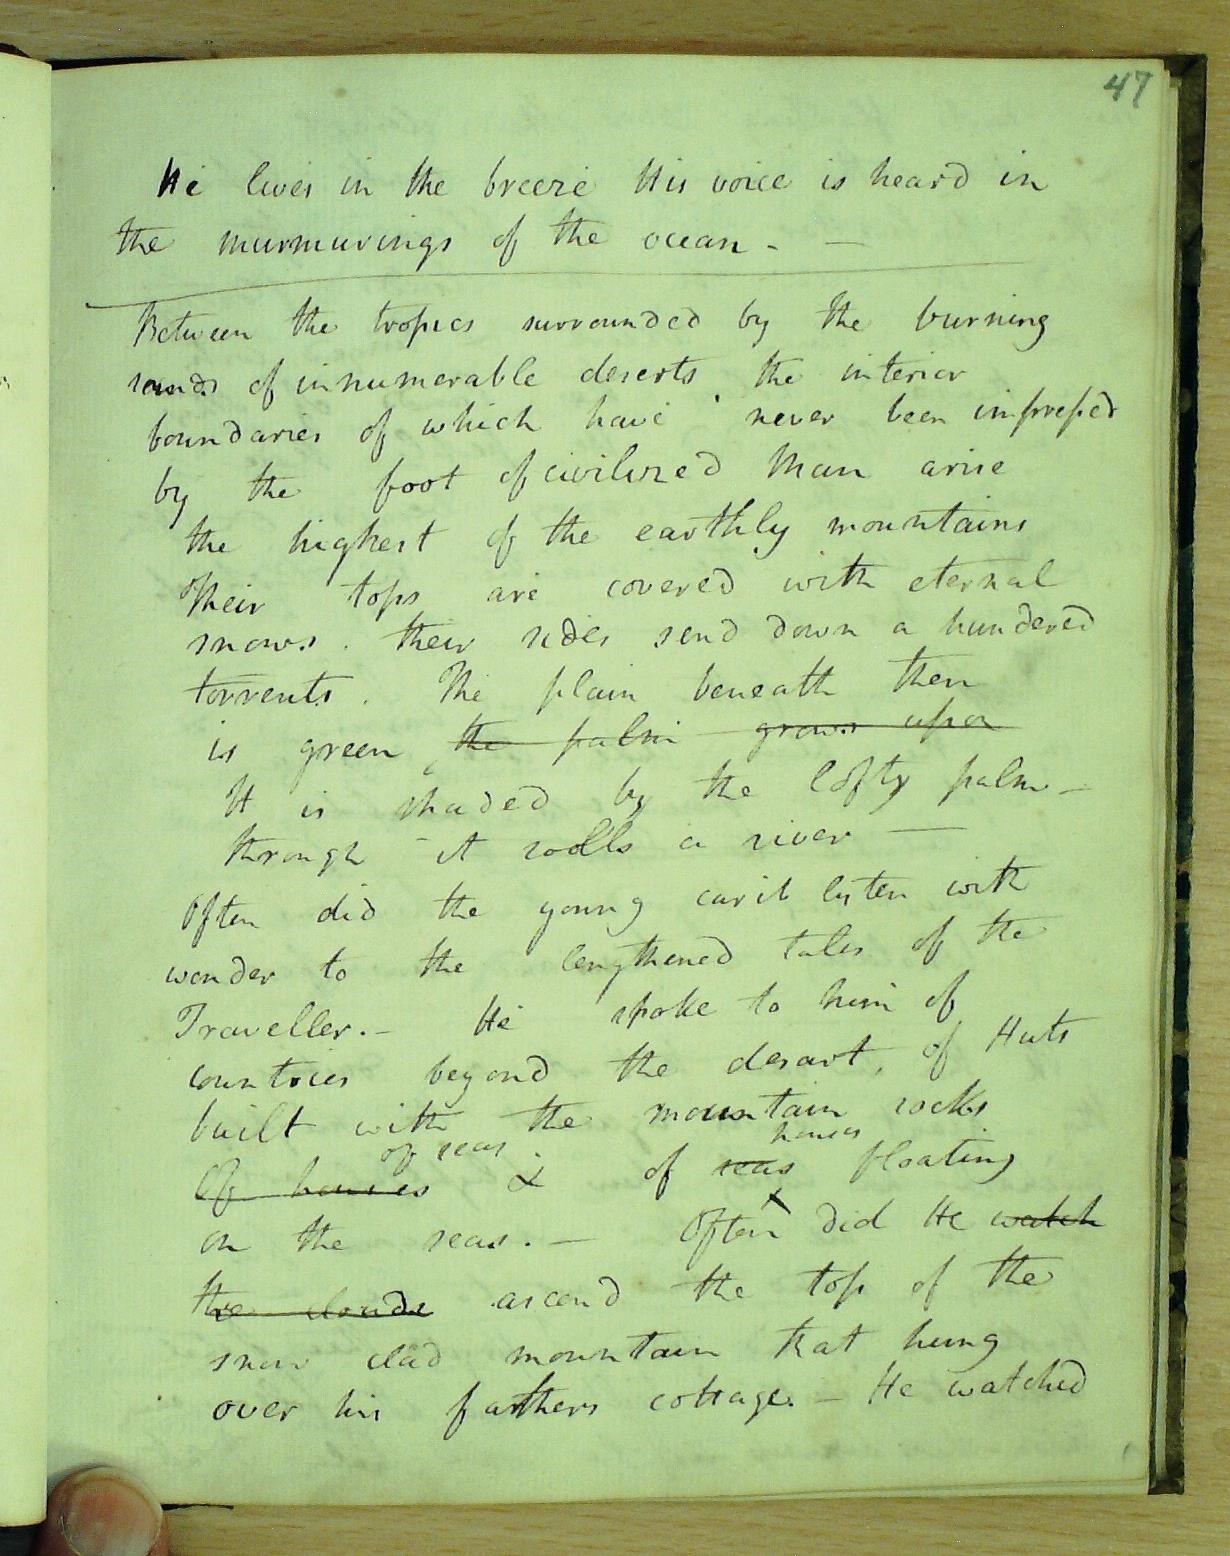 47
He lives in the breeze His voice is heard in
the murmurings of the ocean - —
Between the tropics surrounded by the burning
sands of innumerable deserts the interior
boundaries of which have never been impressed
by the foot of civilized Man arise
the highest of the earthly mountains
Their tops are covered with eternal
snows. their sides send down a hundered
torrents. The plain beneath then
is green the palm grows upon
It is shaded by the lofty palm -
through it rolls a river —
Often did the young carib listen with
wonder to the lengthened tales of the
Traveller. - He spoke to him of
countries beyond the desart, of Huts
built with the mountain rocks
of seas houses
Of houses & of seas floating
on the seas. — Often did He watch
the clouds ascend the top of the
snow clad mountain that hung
over his fathers cottage. - He watched